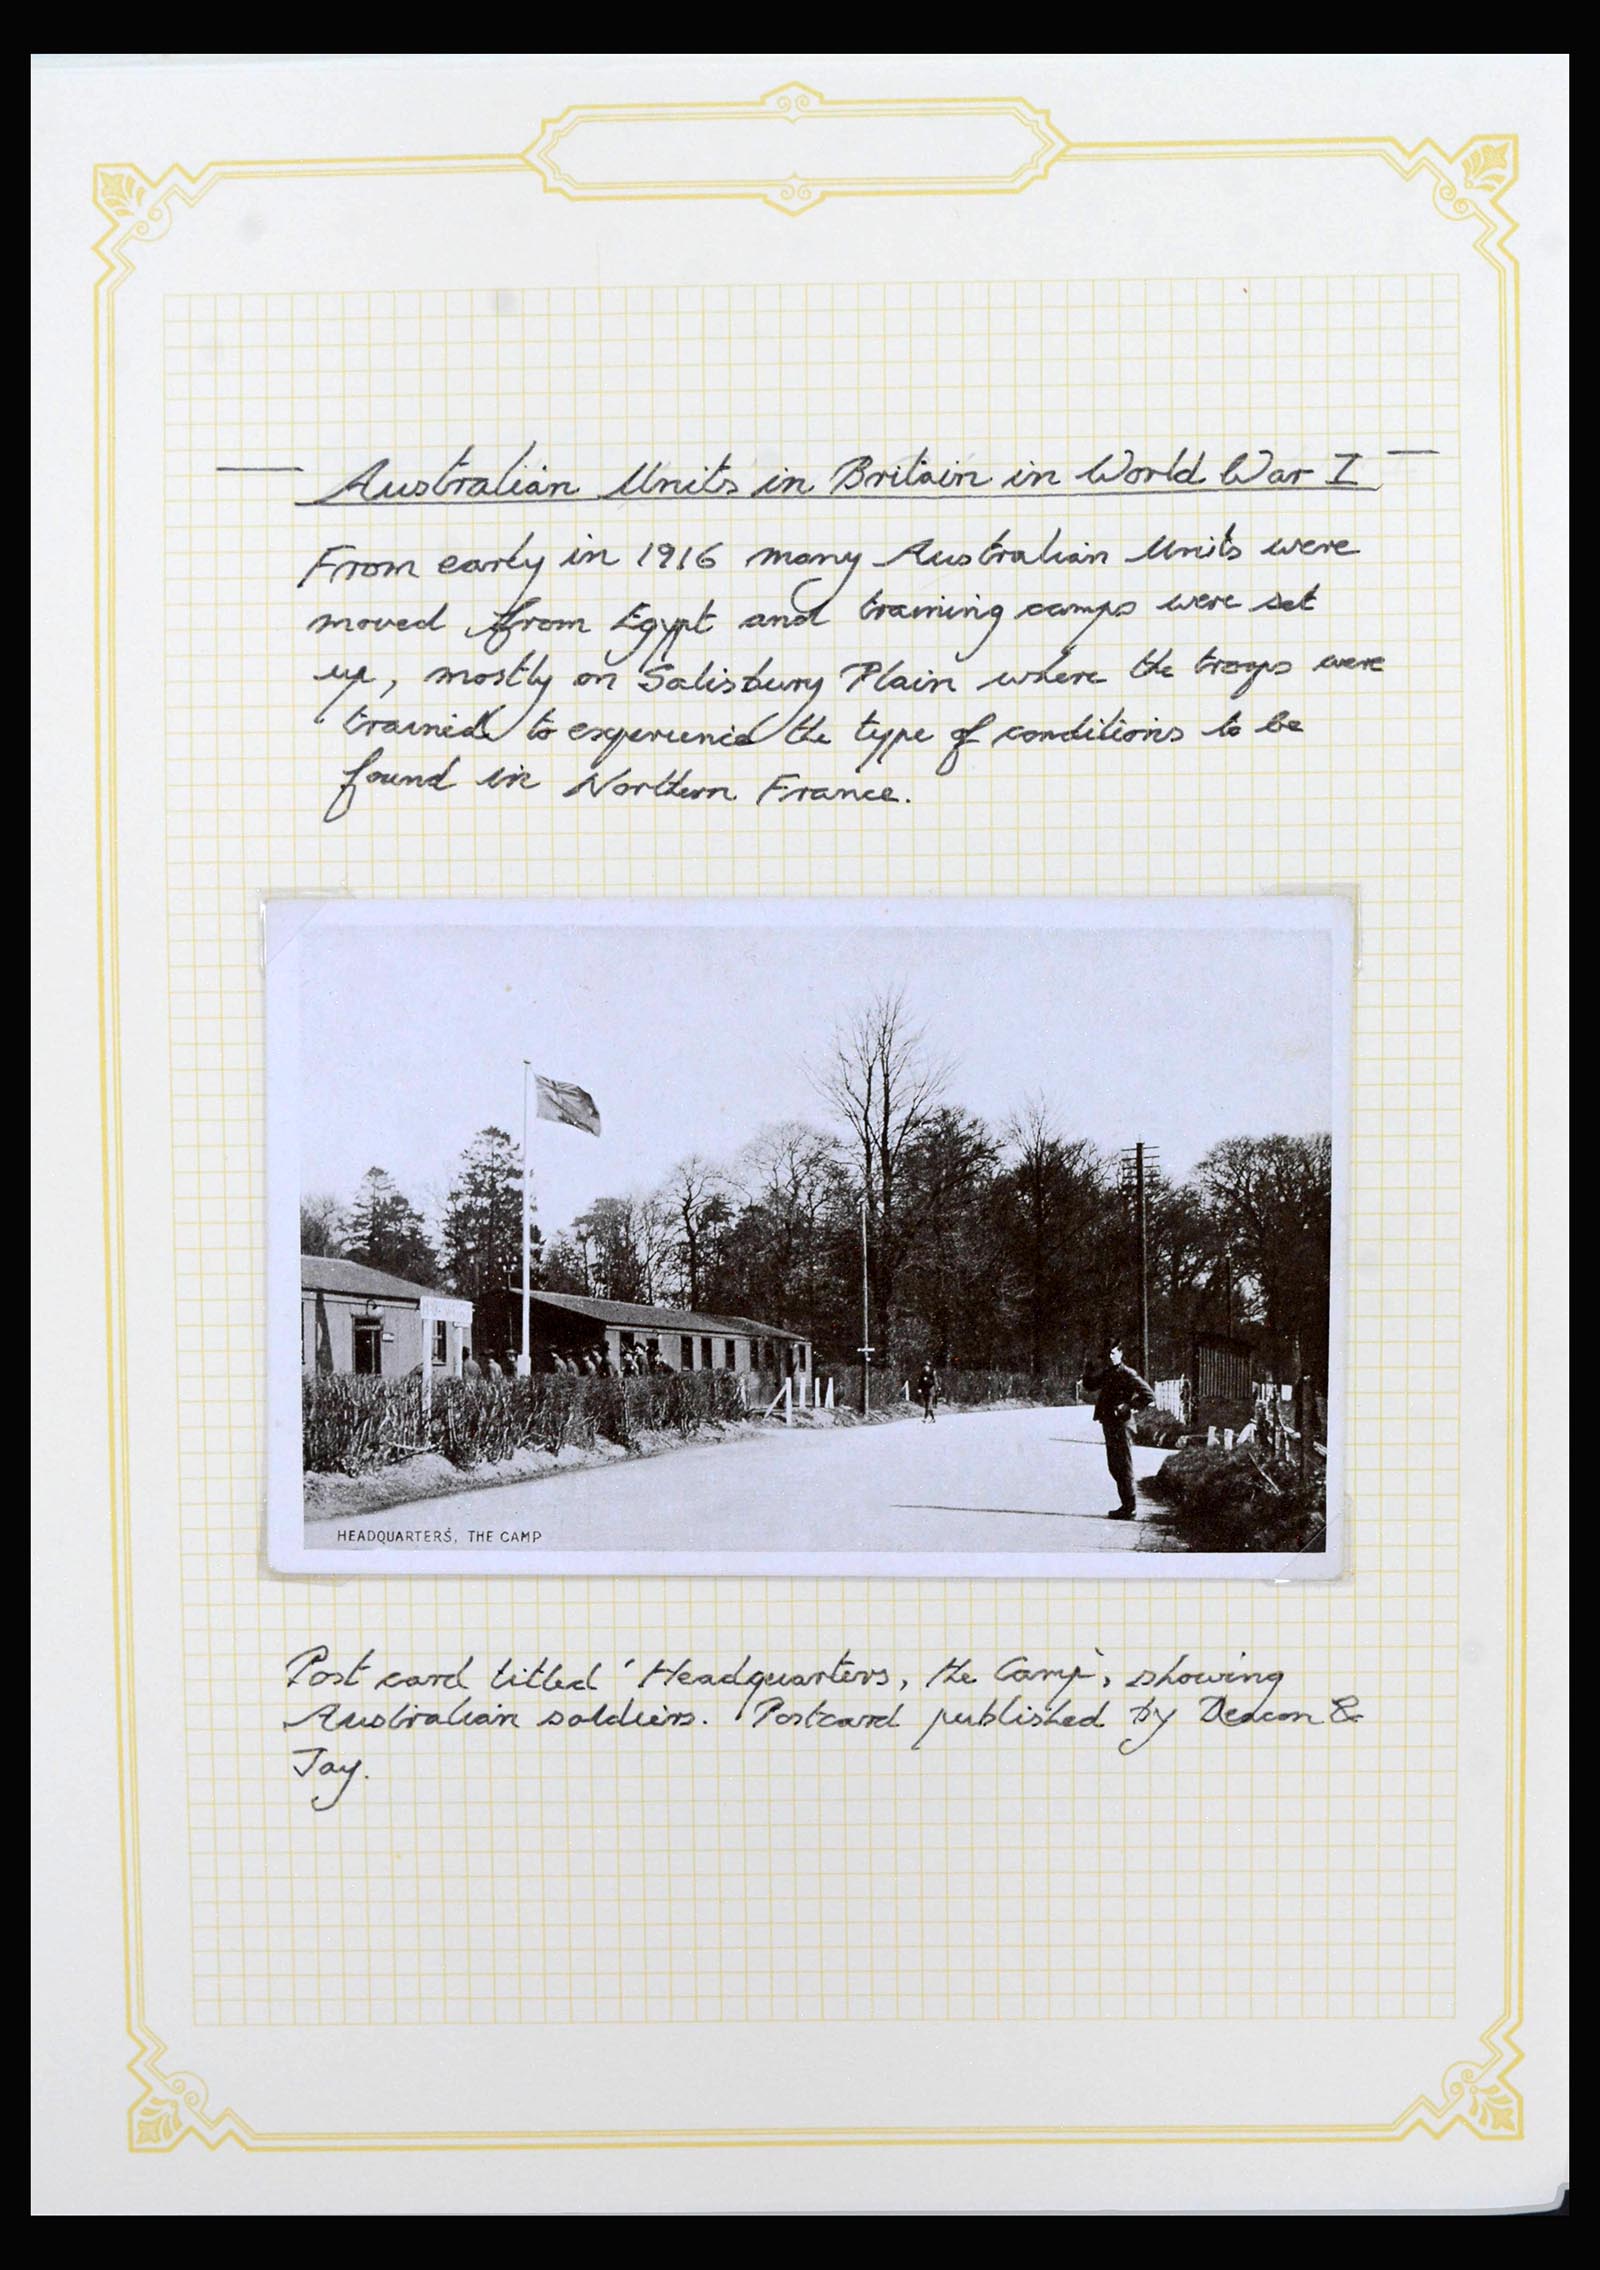 Australian Units in Britain in World War I
From early in 1916 many Australian Units were
moved from Egypt and training camps were set
up, mostly on Salisbury Plain where the troops were
trained to experience the type of conditions to be
found in Northern France.
HEADQUARTERS, THE CAMP
Post card titled 'Headquarters, the Camp', showing
Australian soldiers. Postcard published by Deacon &
Jay.